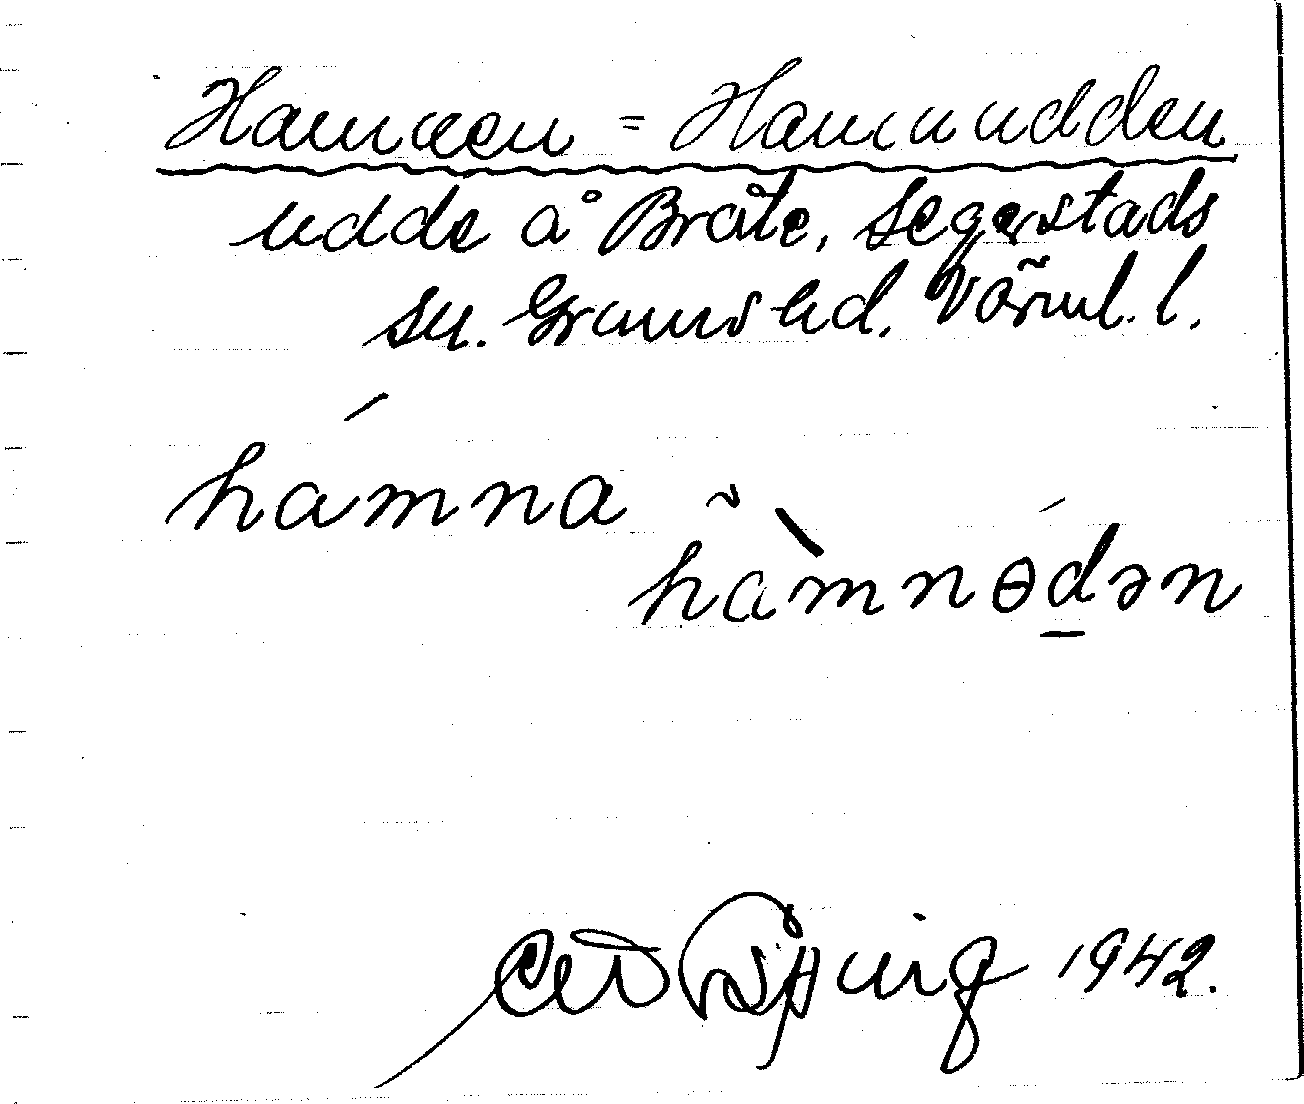 Hamnen = Hamnudden
udde å Bråte, Segerstads
sn. Grums hd. Värml. l.
hámna
hàmnɵdən
1942.